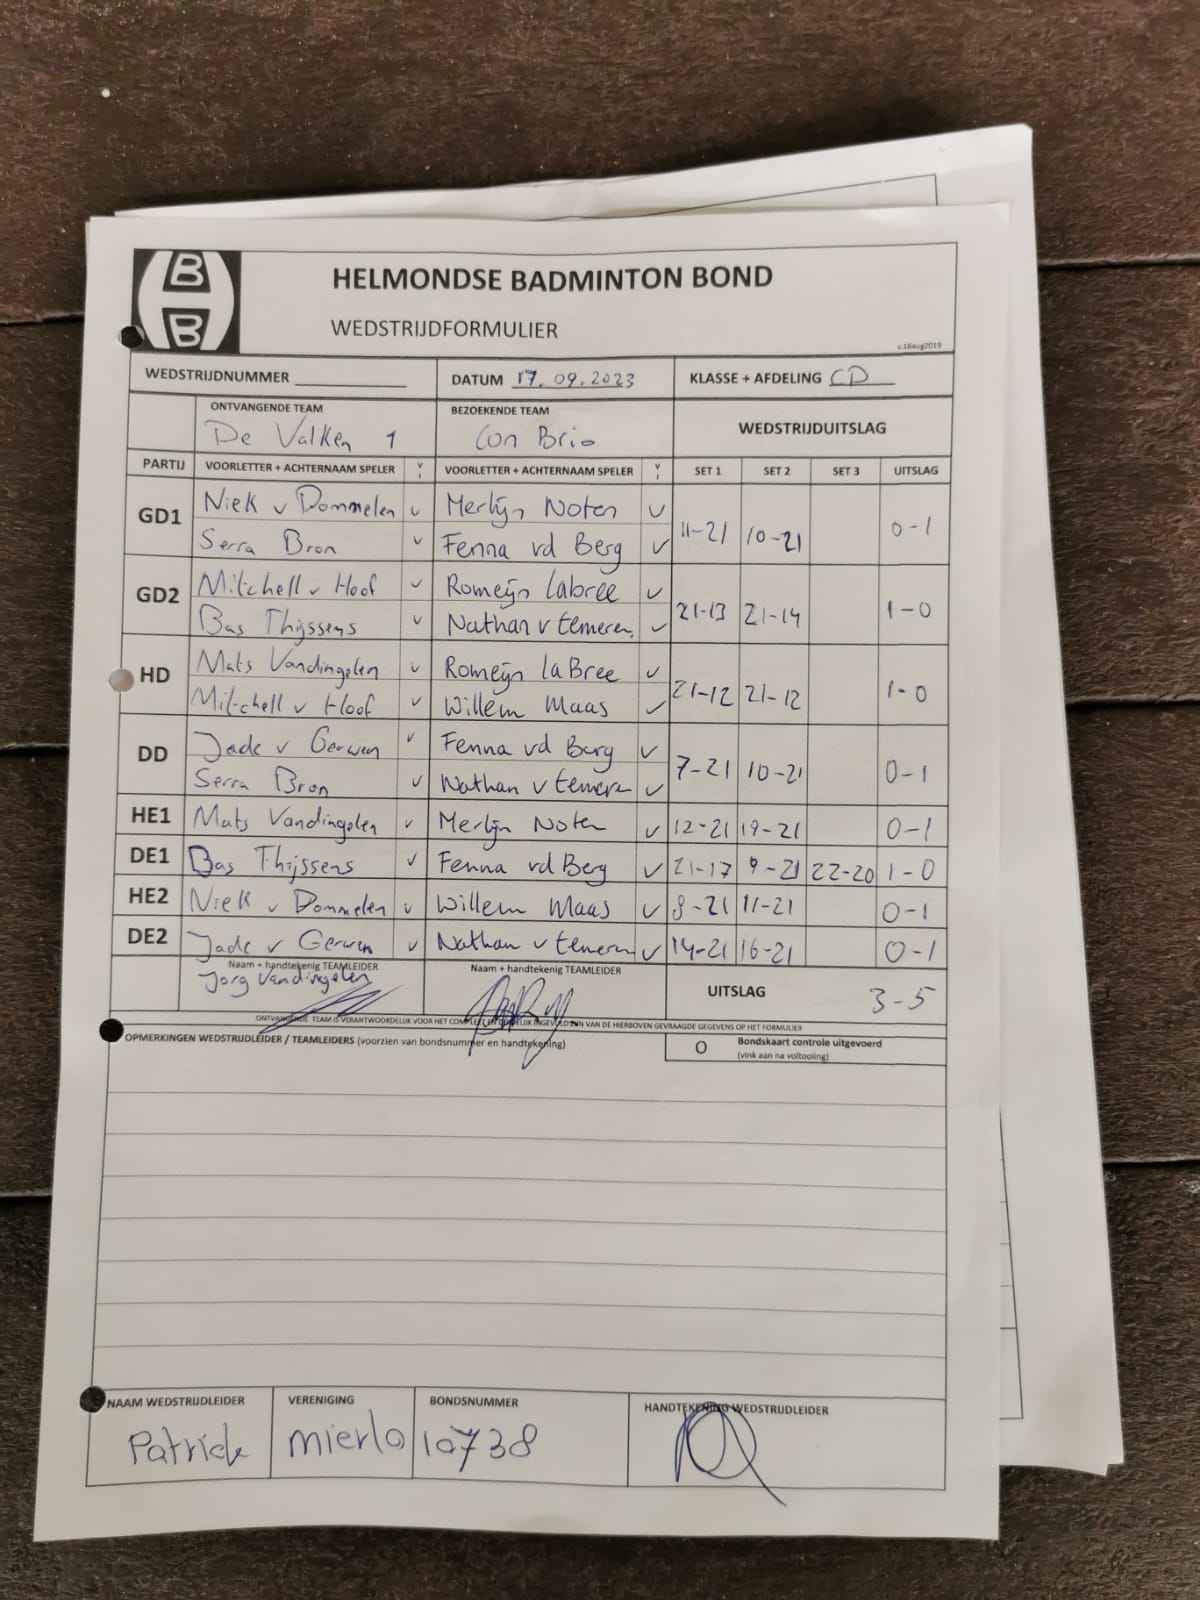 B
B
HELMONDSE BADMINTON BOND
WEDSTRIJDFORMULIER
v.18aug2019
WEDSTRIJDNUMMER DATUM 17.09.2023 KLASSE + AFDELING CD
ONTVANGENDE TEAM BEZOEKENDE TEAM
De Valken 1 Con Brio WEDSTRIJDUITSLAG
PARTIJ VOORLETTER + ACHTERNAAM SPELER V VOORLETTER + ACHTERNAAM SPELER V SET 1 SET 2 SET 3 UITSLAG
Niek v Dommelen v Merlijn Noten v
GD1 11-21 10-21 0-1
Serra Bron v Fenna vd Berg v
Mitchell v Hoof v Romeijn labree v
GD2 21-13 21-14 1-0
Bas Thijssens v Nathan v temeren v
Mats Vandingelen v Romeijn la Bree v
HD 21-12 21-12 1-0
Mitchell v Hoof v Willem Maas v
Jade v Gerwen v Fenna vd Berg v
DD 7-21 10-21 0-1
Serra Bron v Nathan v temeren v
HE1 Mats Vandingelen v Merlijn Noten v 12-21 19-21 0-1
DE1 Bas Thijssens v Fenna vd Berg v 21-17 9-21 22-20 1-0
HE2 Niek v Dommelen v Willem Maas v 8-21 11-21 0-1
DE2 Jade v Gerwen v Nathan v temeren v 14-21 16-21 0-1
Naam + handtekenig TEAMLEIDER Naam + handtekenig TEAMLEIDER
Jorg Vandingelen UITSLAG 3-5
ONTVANGENDE TEAM IS VERANTWOORDELIJK VOOR HET VAN DE HIERBOVEN GEVRAAGDE GEGEVENS OP HET FORMULIER
OPMERKINGEN WEDSTRIJDLEIDER / TEAMLEIDERS (voorzien van bondsnummer en handtekening) O Bondskaart controle uitgevoerd
(vink aan na voltooiing)
NAAM WEDSTRIJDLEIDER VERENIGING BONDSNUMMER HANDTEKENING WEDSTRIJDLEIDER
Patrick mierlo 10738